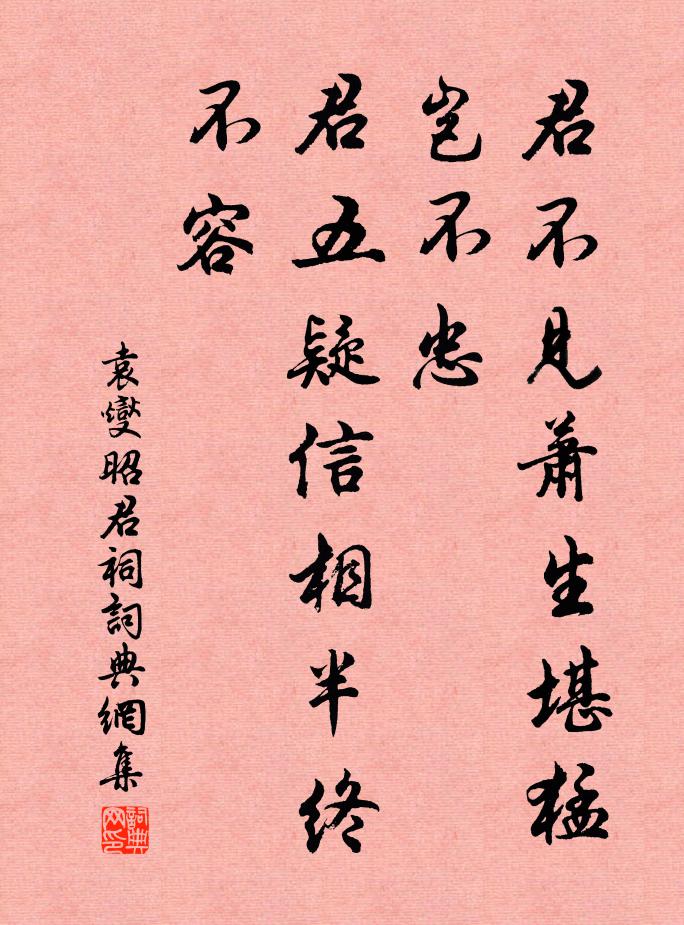 君不見蕭生堪猛
豈不忠
君五疑信相半終
不容
袁燮昭君祠詞典網集
詞典网印